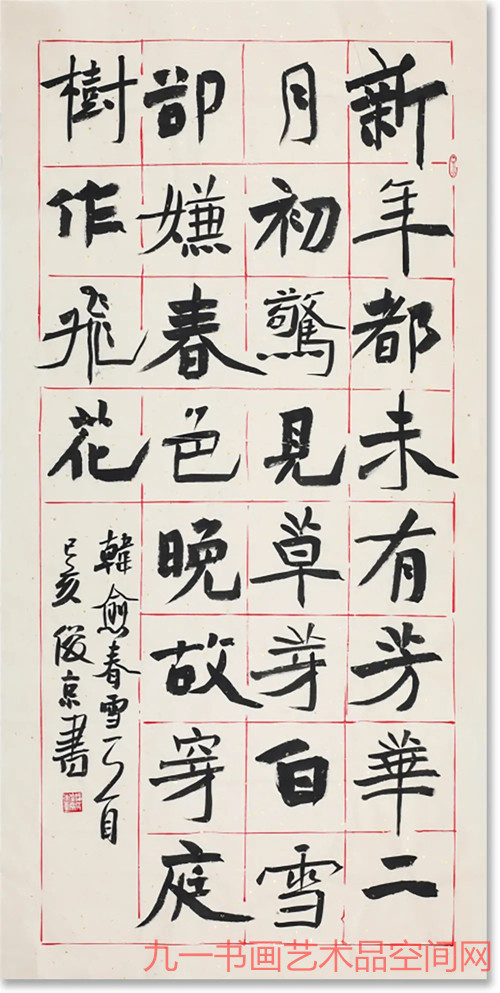 新年都未有芳華二
月初驚見草芽白雪
卻嫌春色晚故穿庭
樹作飛花
韓愈春雪一首
己亥俊京書
九一书画艺术品空间网